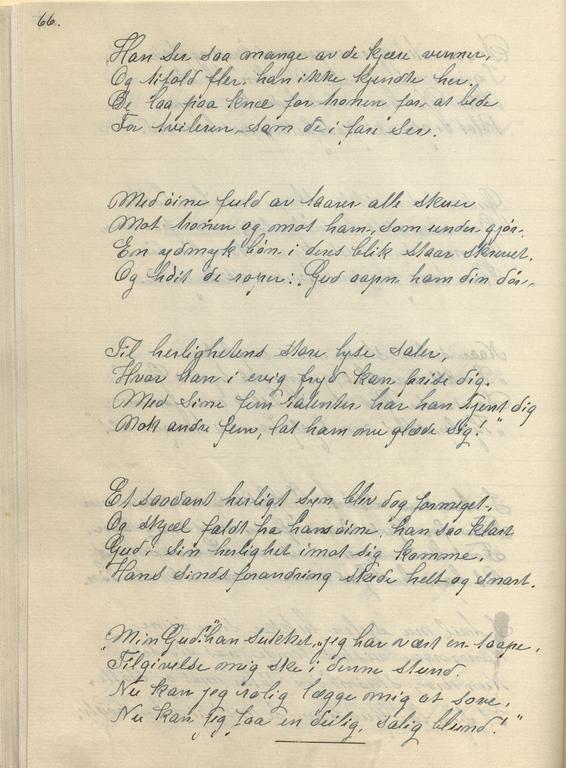 66.
Han ser saa mange av de kjære venner,
Og tifold fler, han ikke kjendte her.
De laa paa knæ for tronen for at bede
For tvileren, som de i fare ser.
Med öine fuld av taarer alle skuer
Mot tronen og mot ham, som under gjör.
En ydmyk bön i deres blik staar skrevet.
Og höit de roper: „Gud aapn ham din dör,
Til herlighetens store lyse saler,
Hvor han i evig fryd kan prise dig.
Med sine fem talenter har han tjent dig
Nok andre fem, lat ham nu glæde sig!"
Et saadant herligt syn blev dog formeget,
Og skjæl faldt fra hans öine, han saa klart
Gud i sin herlighet imot sig komme.
Hans sindsforandring skede helt og snart.
„Min Gud!" han sukket, „jeg har vært en taape,
Tilgivelse mig ske i denne stund.
Nu kan jeg rolig lægge mig at sove,
Nu kan jeg faa en deilig, salig blund!"